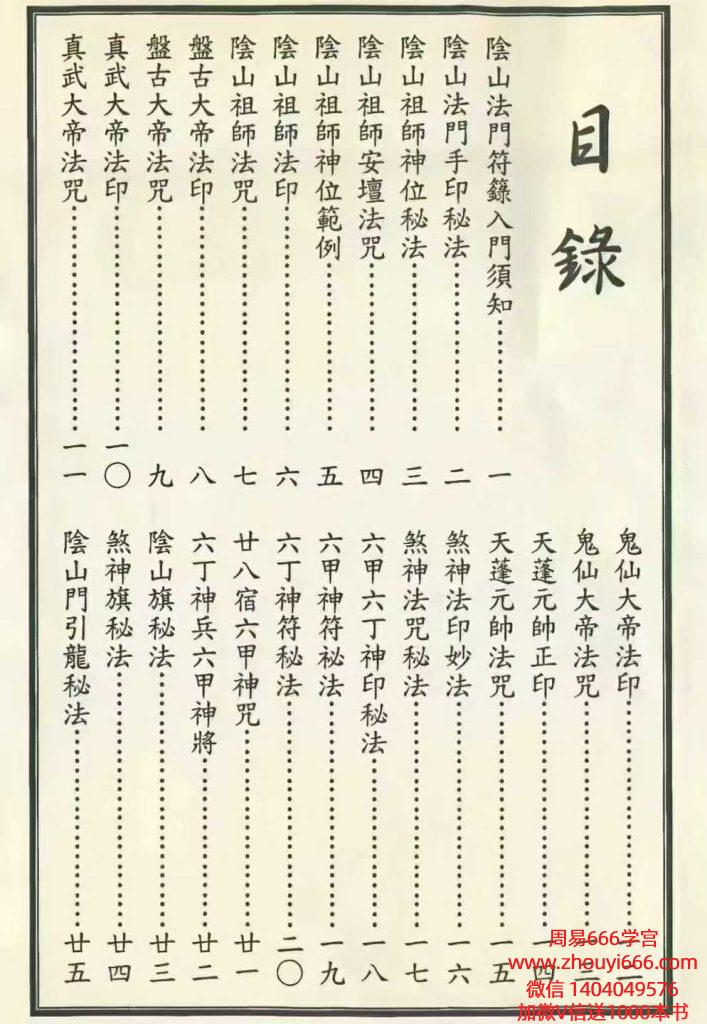 目錄
陰山法門符籙入門須知⋯⋯⋯⋯一
陰山法門手印秘法⋯⋯⋯⋯二
陰山祖師神位秘法⋯⋯⋯⋯三
陰山祖師安壇法咒⋯⋯⋯⋯四
陰山祖師神位範例⋯⋯⋯⋯五
陰山祖師法印⋯⋯⋯⋯六
陰山祖師法咒⋯⋯⋯⋯七
盤古大帝法印⋯⋯⋯⋯八
盤古大帝法咒⋯⋯⋯⋯九
真武大帝法印⋯⋯⋯⋯一〇
真武大帝法咒⋯⋯⋯⋯一一
鬼仙大帝法印⋯⋯⋯⋯一二
鬼仙大帝法咒⋯⋯⋯⋯一三
天蓬元帥正印⋯⋯⋯⋯一四
天蓬元帥法咒⋯⋯⋯⋯一五
煞神法印妙法⋯⋯⋯⋯一六
煞神法咒秘法⋯⋯⋯⋯一七
六甲六丁神印秘法⋯⋯⋯⋯一八
六甲神符祕法⋯⋯⋯⋯一九
六丁神符秘法⋯⋯⋯⋯二〇
廿八宿六甲神咒⋯⋯⋯⋯廿一
六丁神兵六甲神將⋯⋯⋯⋯廿二
陰山旗秘法⋯⋯⋯⋯廿三
煞神旗秘法⋯⋯⋯⋯廿四
陰山門引龍秘法⋯⋯⋯⋯廿五
周易666学宫
www.zhouyi666.com
微信 1404049576
加微V信送1000本书